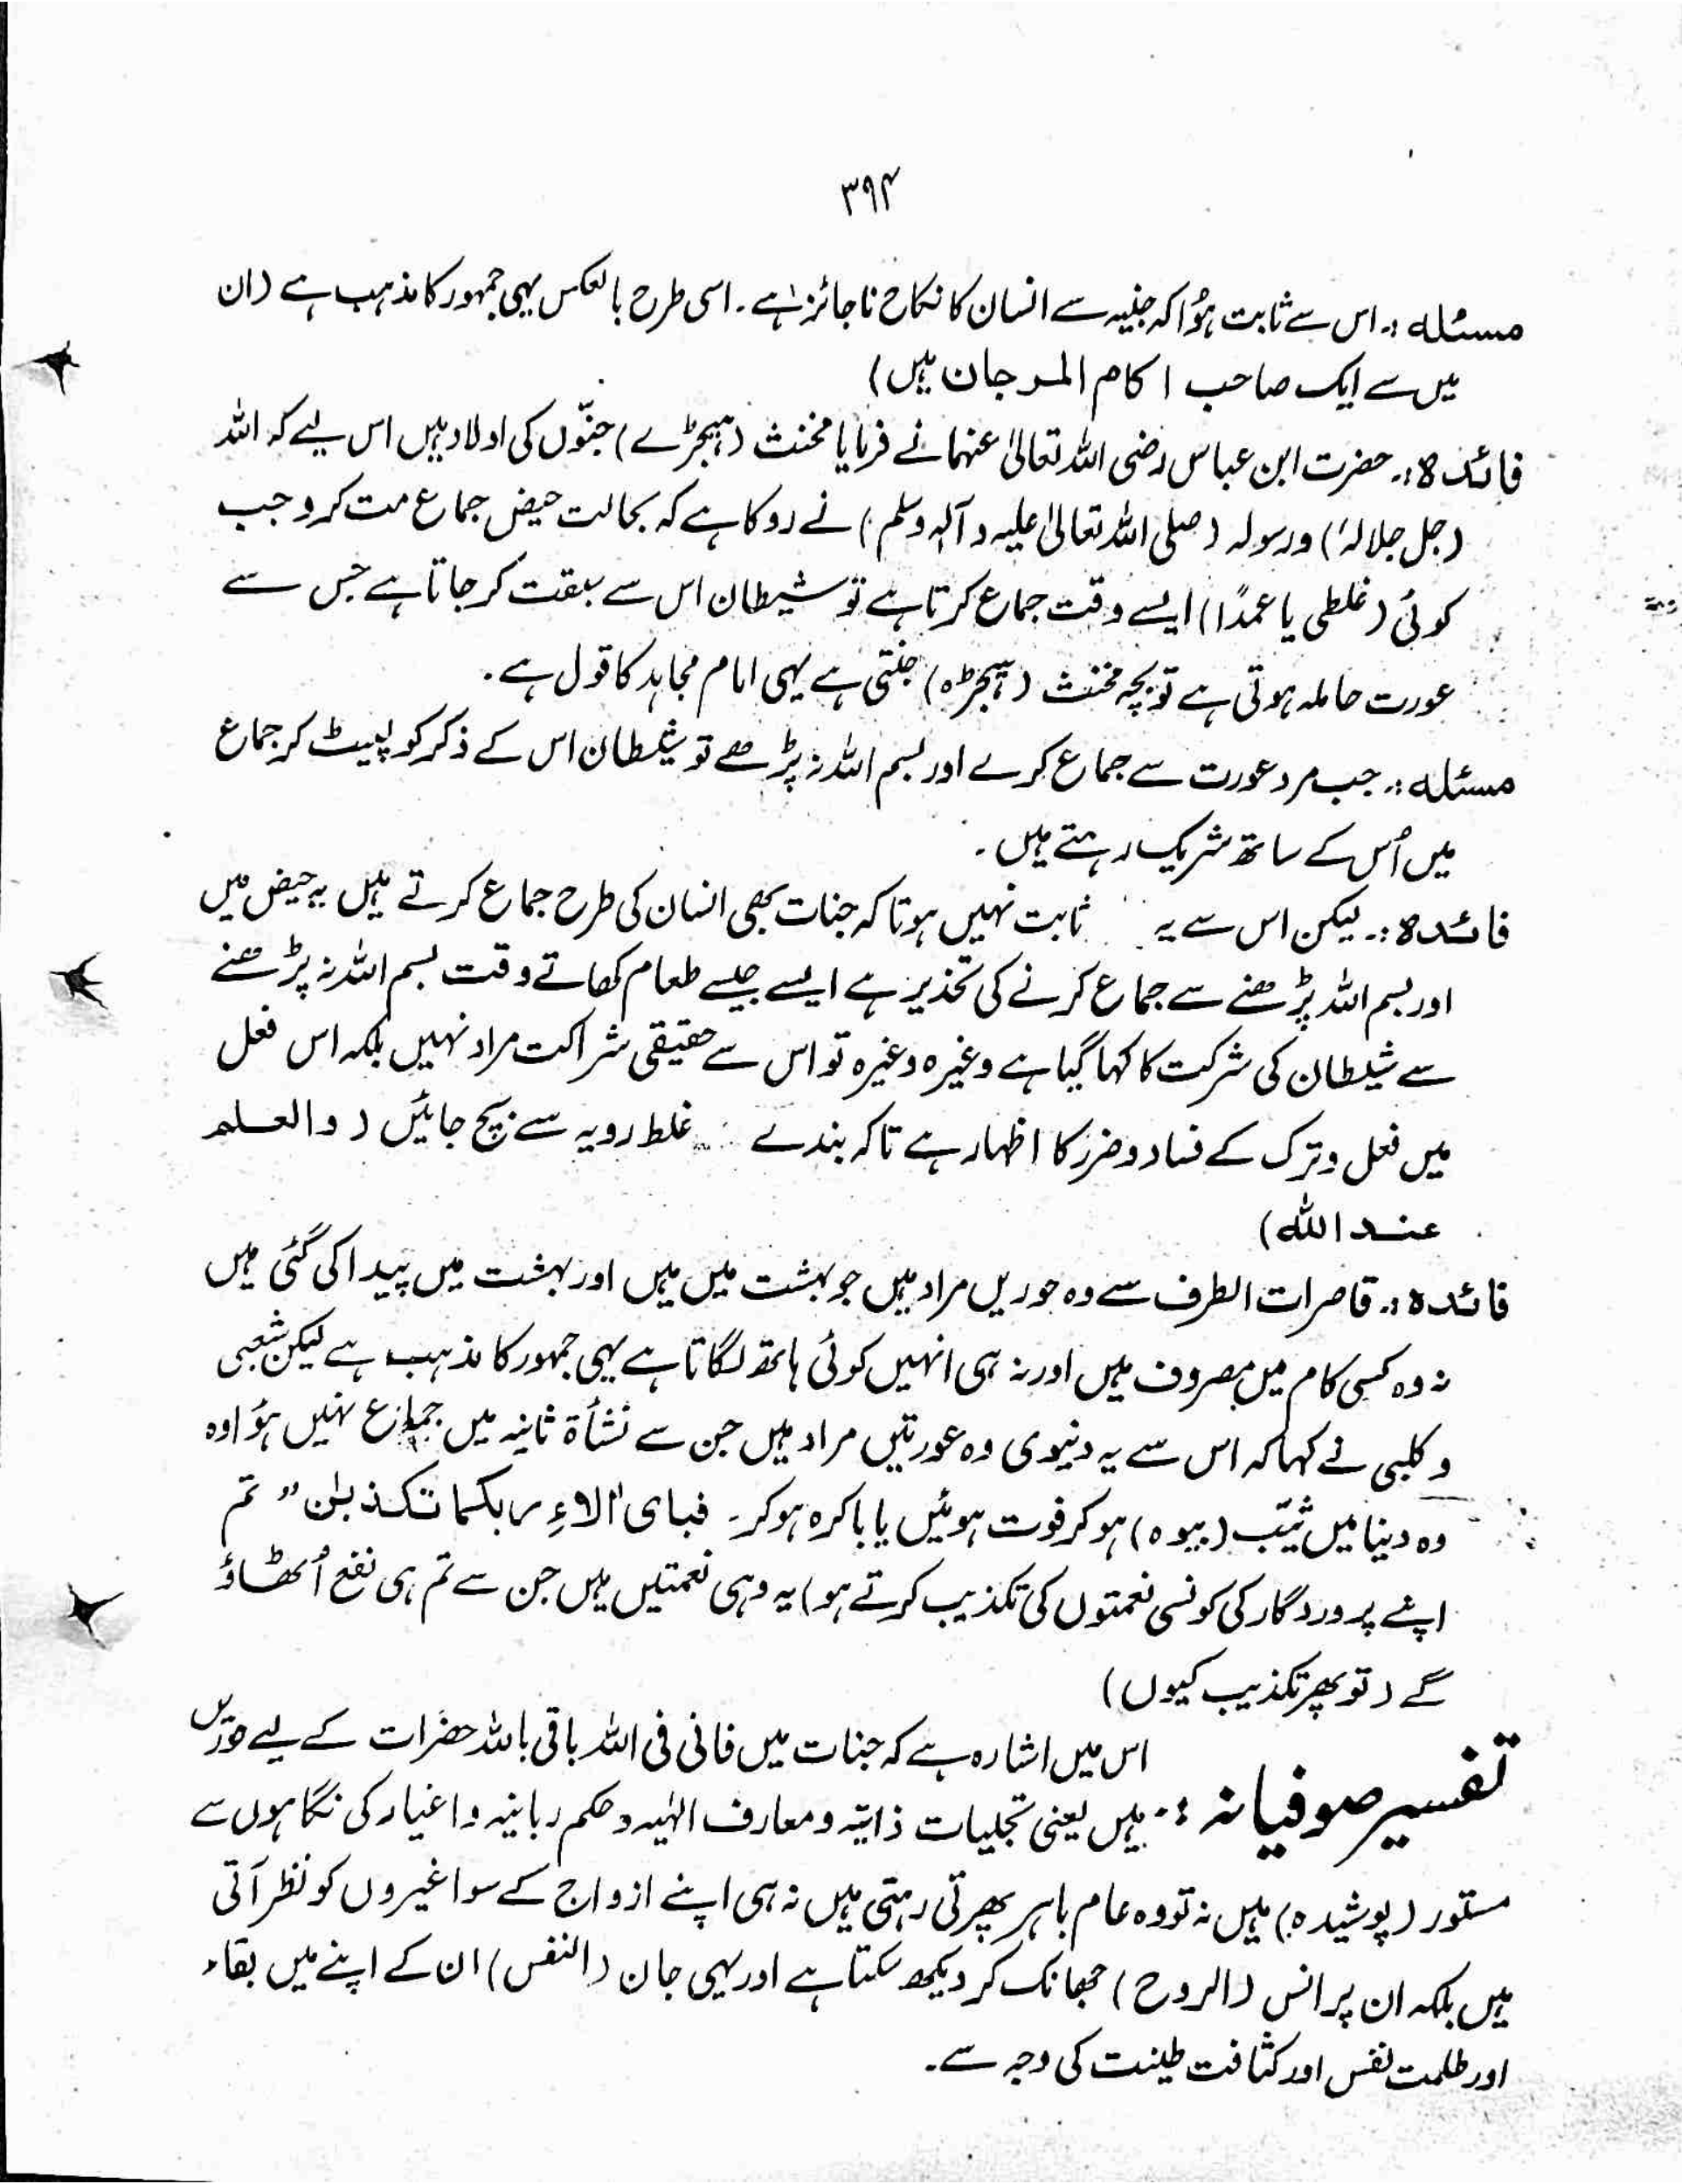 ۳۹۴
مسئلہ :۔ اس سے ثابت ہُوا کہ جنیہ سے انسان کا نکاح ناجائز ہے ۔ اسی طرح بالعکس یہی جمہور کا مذہب ہے (ان
میں سے ایک صاحب اکام المرجان ہیں)
فائدہ :۔ حضرت ابن عباس رضی اللہ تعالیٰ عنہما نے فرمایا مخنث (ہیجڑے) جنّوں کی اولاد ہیں اس لیے کہ اللہ
(جل جلالہٗ) ورسولہ (صلی اللہ تعالیٰ علیہ و آلہٖ وسلم) نے روکا ہے کہ بحالت حیض جماع مت کرو جب
کوئی (غلطی یا عمدًا) ایسے وقت جماع کرتا ہے تو شیطان اس سے سبقت کر جاتا ہے جس سے
عورت حاملہ ہوتی ہے تو بچہ مخنث (ہیجڑہ) جنتی ہے یہی امام مجاہد کا قول ہے ۔
مسئلہ :۔ جب مرد عورت سے جماع کرے اور بسم اللہ نہ پڑھے تو شیطان اس کے ذکر کو لپیٹ کر جماع
میں اُس کے ساتھ شریک رہتے ہیں ۔
فائدہ :۔ لیکن اس سے یہ ثابت نہیں ہوتا کہ جنات بھی انسان کی طرح جماع کرتے ہیں یہ حیض میں
اور بسم اللہ پڑھنے سے جماع کرنے کی تحذیر ہے ایسے جیسے طعام کھاتے وقت بسم اللہ نہ پڑھنے
سے شیطان کی شرکت کا کہا گیا ہے وغیرہ وغیرہ تو اس سے حقیقی شراکت مراد نہیں بلکہ اس فعل
میں فعل و ترک کے فساد و ضرر کا اظہار ہے تاکہ بندے غلط رویہ سے بچ جائیں (والعلم
عند اللہ)
فائدہ :۔ قاصرات الطرف سے وہ حوریں مراد ہیں جو بہشت میں ہیں اور بہشت میں پیدا کی گئی ہیں
نہ وہ کسی کام میں مصروف ہیں اور نہ ہی انہیں کوئی ہاتھ لگاتا ہے یہی جمہور کا مذہب ہے لیکن شعبی
و کلبی نے کہا کہ اس سے یہ دنیوی وہ عورتیں مراد ہیں جن سے نشأۃ ثانیہ میں جماع نہیں ہُوا وہ
وہ دنیا میں ثیّب (بیوہ) ہو کر فوت ہوئیں یا باکرہ ہو کر۔ فبای اٰلاءِ ربکما تکذبٰن ” تم
اپنے پروردگار کی کونسی نعمتوں کی تکذیب کرتے ہو) یہ وہی نعمتیں ہیں جن سے تم ہی نفع اُٹھاؤ
گے (تو پھر تکذیب کیوں)
تفسیر صوفیانہ :۔ اس میں اشارہ ہے کہ جنات میں فانی فی اللہ باقی باللہ حضرات کے لیے حوریں
ہیں یعنی تجلیات ذاتیہ و معارف الٰہیہ و حکم ربانیہ و اغیار کی نگاہوں سے
مستور (پوشیدہ) ہیں نہ تو وہ عام باہر پھرتی رہتی ہیں نہ ہی اپنے ازواج کے سوا غیروں کو نظر آتی
ہیں بلکہ ان پر انس (الروح) جھانک کر دیکھ سکتا ہے اور یہی جان (النفس) ان کے اپنے میں بقاء
اور ظلمت نفس اور کثافت طینت کی وجہ سے ۔